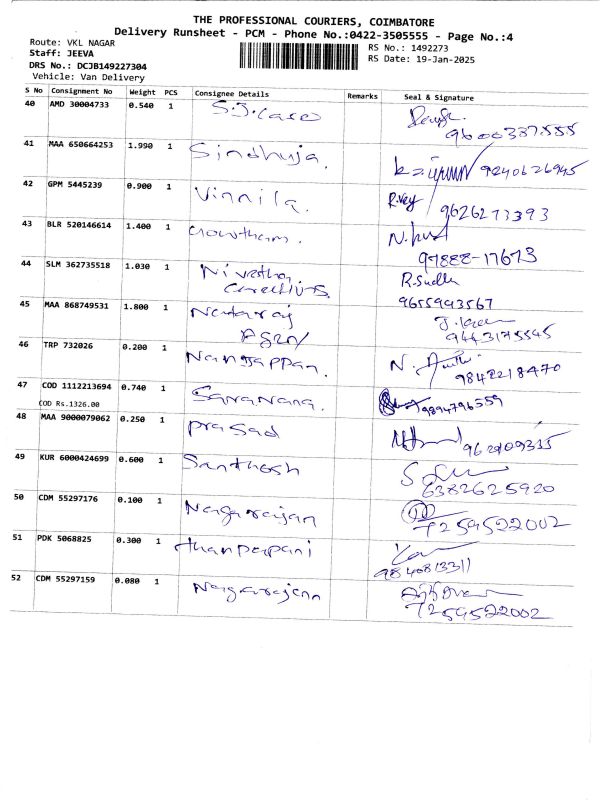 THE PROFESSIONAL COURIERS, COIMBATORE
Delivery Runsheet - PCM - Phone No.:0422-3505555 - Page No.:4
Route: VKL NAGAR
RS No.: 1492273
Staff: JEEVA
RS Date: 19-Jan-2025
DRS No.: DCJB149227304
Vehicle: Van Delivery
S No Consignment No Weight PCS Consignee Details Remarks Seal & Signature
40 AMD 30004733 0.540 1
9600337555
41 MAA 650664253 1.990 1 Sindhuja.
9240626945
42 GPM 5445239 0.900 1 Vinnila.
9626273393
43 BLR 520146614 1.400 1 Gowtham. N.
97888-17673
44 SLM 362735518 1.030 1 Nivetha R.Sudha
9655993567
45 MAA 868749531 1.800 1 Nataraj
9443175545
46 TRP 732026 0.200 1 Nanjappan. N.
9842218470
47 COD 1112213694 0.740 1 Saravana. 9894796559
COD Rs.1326.00
48 MAA 9000079062 0.250 1 prasad
49 KUR 6000424699 0.600 1 Santhosh
6382625920
50 CDM 55297176 0.100 1 Nagarajan
7259522002
51 PDK 5068825 0.300 1 thanpapani
9840813311
52 CDM 55297159 0.080 1 Nagarajann
7259522002